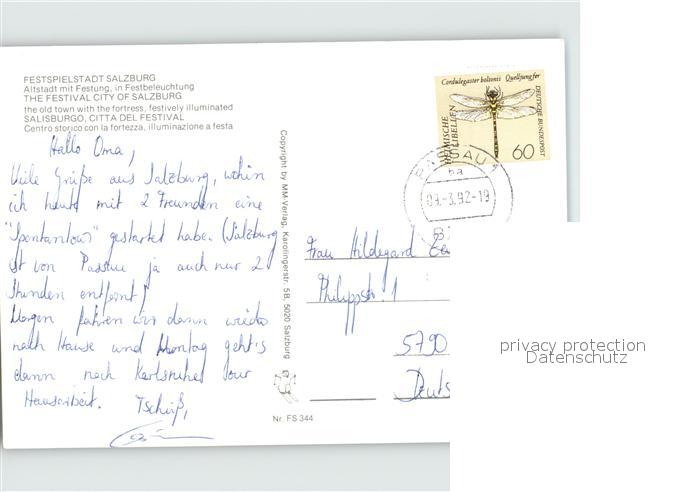 FESTSPIELSTADT SALZBURG
Altstadt mit Festung, in Festbeleuchtung
THE FESTIVAL CITY OF SALZBURG
the old town with the fortress, festively illuminated
SALISBURGO, CITTA DEL FESTIVAL
Centro storico con la fortezza, illuminazione a festa
Hallo Oma,
Viele Grüße aus Salzburg, wohin
ich heute mit 2 Freunden eine
"Spontantour" gestartet habe. (Salzburg
ist von Passau ja auch nur 2
Stunden entfernt)
Morgen fahren wir dann wieder
nach Hause und Montag geht's
dann nach Karlsruhe zur
Hausarbeit. Tschüß,
Copyright by MM-Verlag, Karolingerstr. 5B, 5020 Salzburg
Cordulegaster boltonii Quelljungfer
HEIMISCHE LIBELLEN
DEUTSCHE BUNDESPOST
60
PASSAU 1
ba
09.-3.92-19
Frau Hildegard
Philippstr. 1
5790
Deuts
Nr. FS 344
privacy protection
Datenschutz